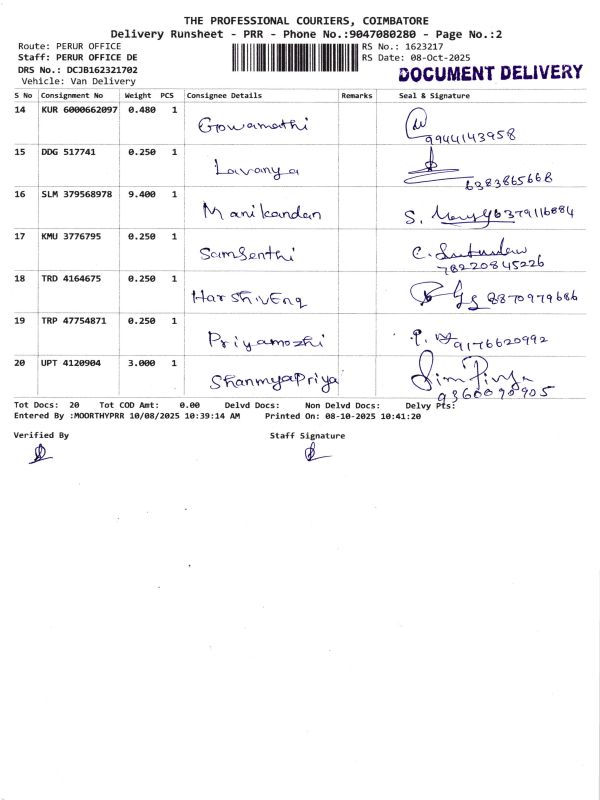 THE PROFESSIONAL COURIERS, COIMBATORE
Delivery Runsheet - PRR - Phone No.:9047080280 - Page No.:2
Route: PERUR OFFICE RS No.: 1623217
Staff: PERUR OFFICE DE RS Date: 08-Oct-2025
DRS No.: DCJB162321702 DOCUMENT DELIVERY
Vehicle: Van Delivery
S No Consignment No Weight PCS Consignee Details Remarks Seal & Signature
14 KUR 6000662097 0.480 1 Gowamathi
9944143958
15 DDG 517741 0.250 1 Lavanya
6383865668
16 SLM 379568978 9.400 1 Manikandan S. 6379116884
17 KMU 3776795 0.250 1 Samsenthi C.
78220845226
18 TRD 4164675 0.250 1 Harshivenq 8870979686
19 TRP 47754871 0.250 1 Priyamozhi P. 9176620992
20 UPT 4120904 3.000 1 ShanmyaPriya
9360090905
Tot Docs: 20 Tot COD Amt: 0.00 Delvd Docs: Non Delvd Docs: Delvy Pts:
Entered By :MOORTHYPRR 10/08/2025 10:39:14 AM Printed On: 08-10-2025 10:41:20
Verified By Staff Signature